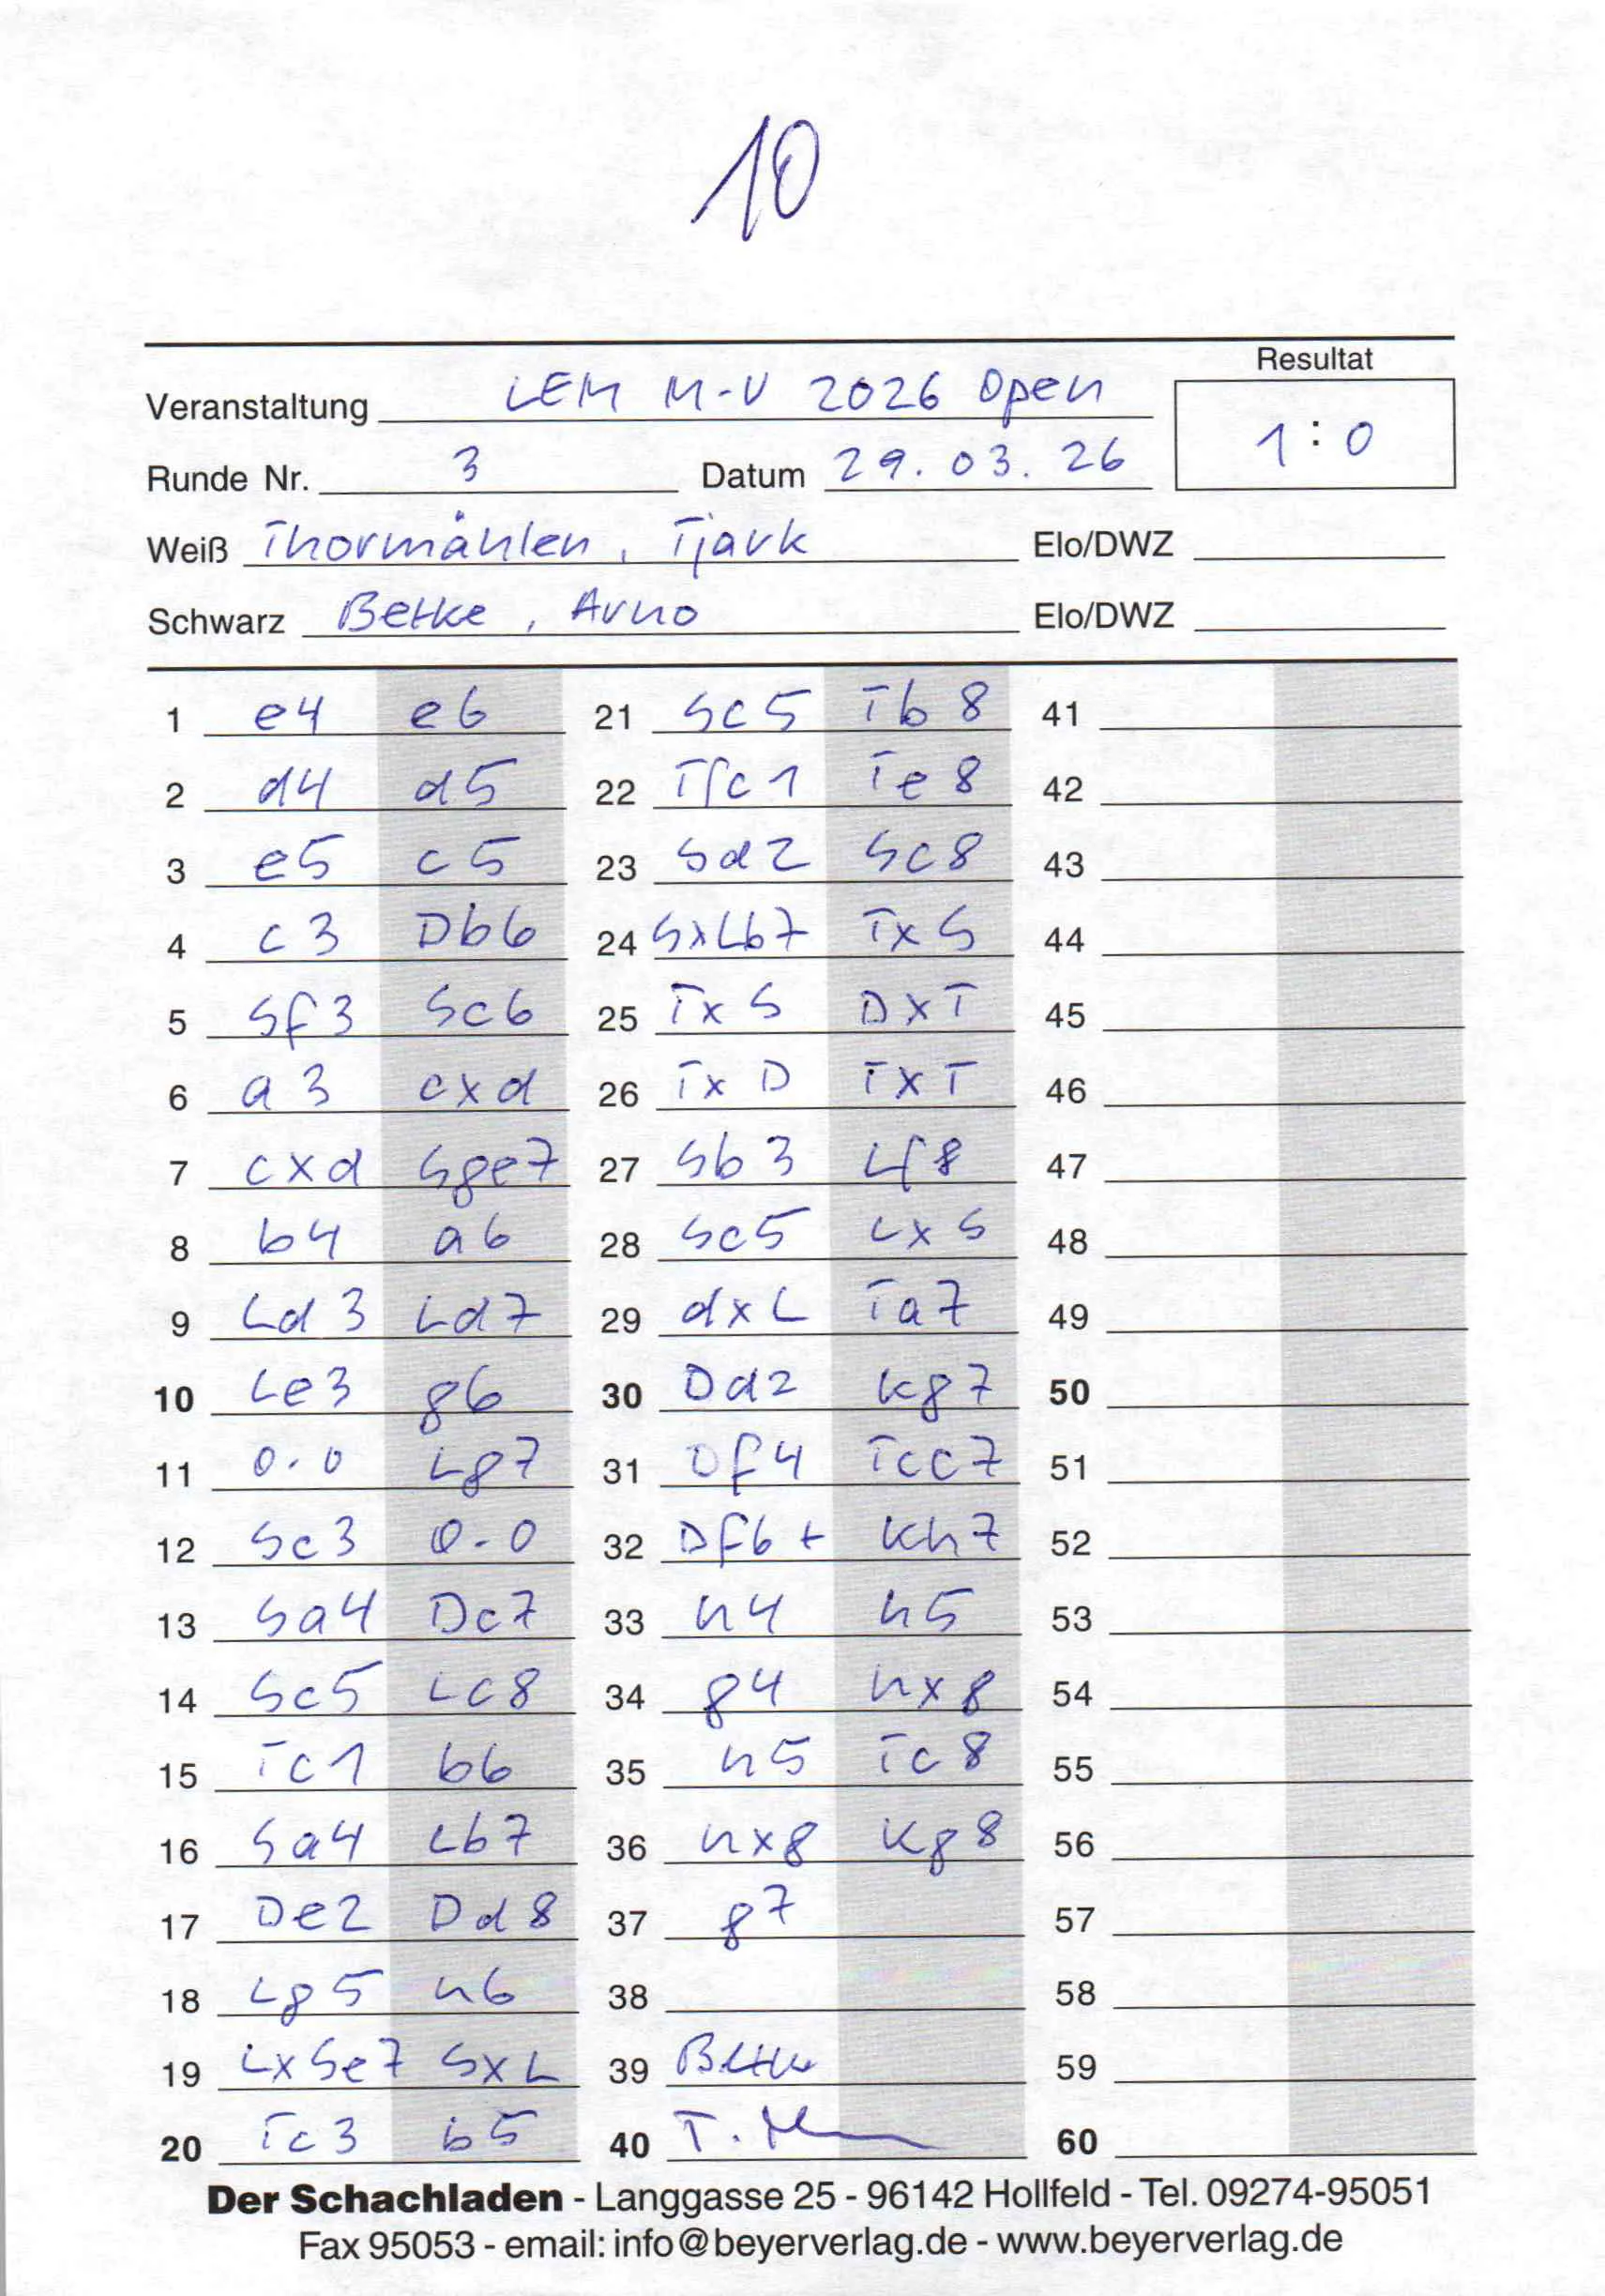 10
Resultat
Veranstaltung LEM M-V 2026 Open
1:0
Runde Nr. 3 Datum 29.03.26
Weiß Thormählen, Tjark Elo/DWZ
Schwarz Betke, Arno Elo/DWZ
1 e4 e6 21 Sc5 Tb8 41
2 d4 d5 22 Tfc1 Te8 42
3 e5 c5 23 Sd2 Sc8 43
4 c3 Db6 24 SxLb7 TxS 44
5 Sf3 Sc6 25 TxS DxT 45
6 a3 cxd 26 TxD TxT 46
7 cxd Sge7 27 Sb3 Lf8 47
8 b4 a6 28 Sc5 LxS 48
9 Ld3 Ld7 29 dxL Ta7 49
10 Le3 g6 30 Dd2 Kg7 50
11 0-0 Lg7 31 Df4 Tcc7 51
12 Sc3 0-0 32 Df6+ Kh7 52
13 Sa4 Dc7 33 h4 h5 53
14 Sc5 Lc8 34 g4 hxg 54
15 Tc1 b6 35 h5 Tc8 55
16 Sa4 Lb7 36 hxg Kg8 56
17 De2 Dd8 37 g7 57
18 Lg5 h6 38 58
19 LxSe7 SxL 39 Betke 59
20 Tc3 b5 40 60
Der Schachladen - Langgasse 25 - 96142 Hollfeld - Tel. 09274-95051
Fax 95053 - email: info@beyerverlag.de - www.beyerverlag.de